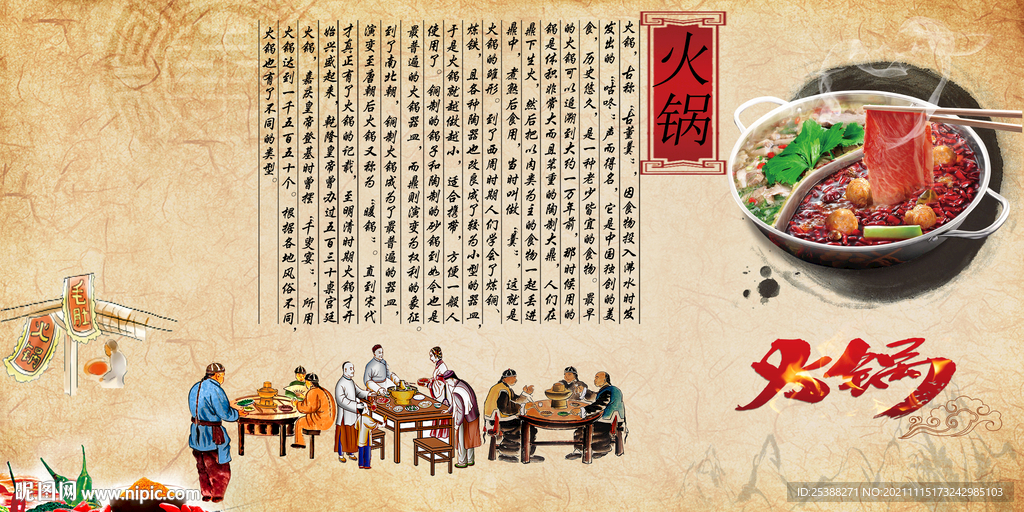 火锅
火锅，古称“古董羹”，因食物投入沸水时发
发出的“咕咚”声而得名，它是中国独创的美
食，历史悠久，是一种老少皆宜的食物。最早
的火锅可以追溯到大约一万年前，那时候用的
锅是体积非常大而且笨重的陶制大鼎，人们在
鼎下生火，然后把以肉类为主的食物一起丢进
鼎中，煮熟后食用，当时叫做“羹”，这就是
火锅的雏形。到了西周时期人们学会了炼铜、
炼铁，且各种陶器也改良成了较为小型的器皿，
于是火锅就越做越小，适合携带，方便一般人
使用了。铜制的锅子和陶制的砂锅到如今也是
最普遍的火锅器皿，而鼎则演变为权利的象征。
到了南北朝，铜制火锅成为了最普遍的器皿，
演变至唐朝后火锅又称为“暖锅”。直到宋代
才真正有了火锅的记载，至明清时期火锅才开
始兴盛起来，乾隆皇帝曾办过五百三十桌宫廷
火锅，嘉庆皇帝登基时曾摆“千叟宴”，所用
火锅达到一千五百五十个。根据各地风俗不同，
火锅也有了不同的类型。
毛肚
火锅
火锅
昵图网 www.nipic.com
ID:25388271 NO:20211115173242985103